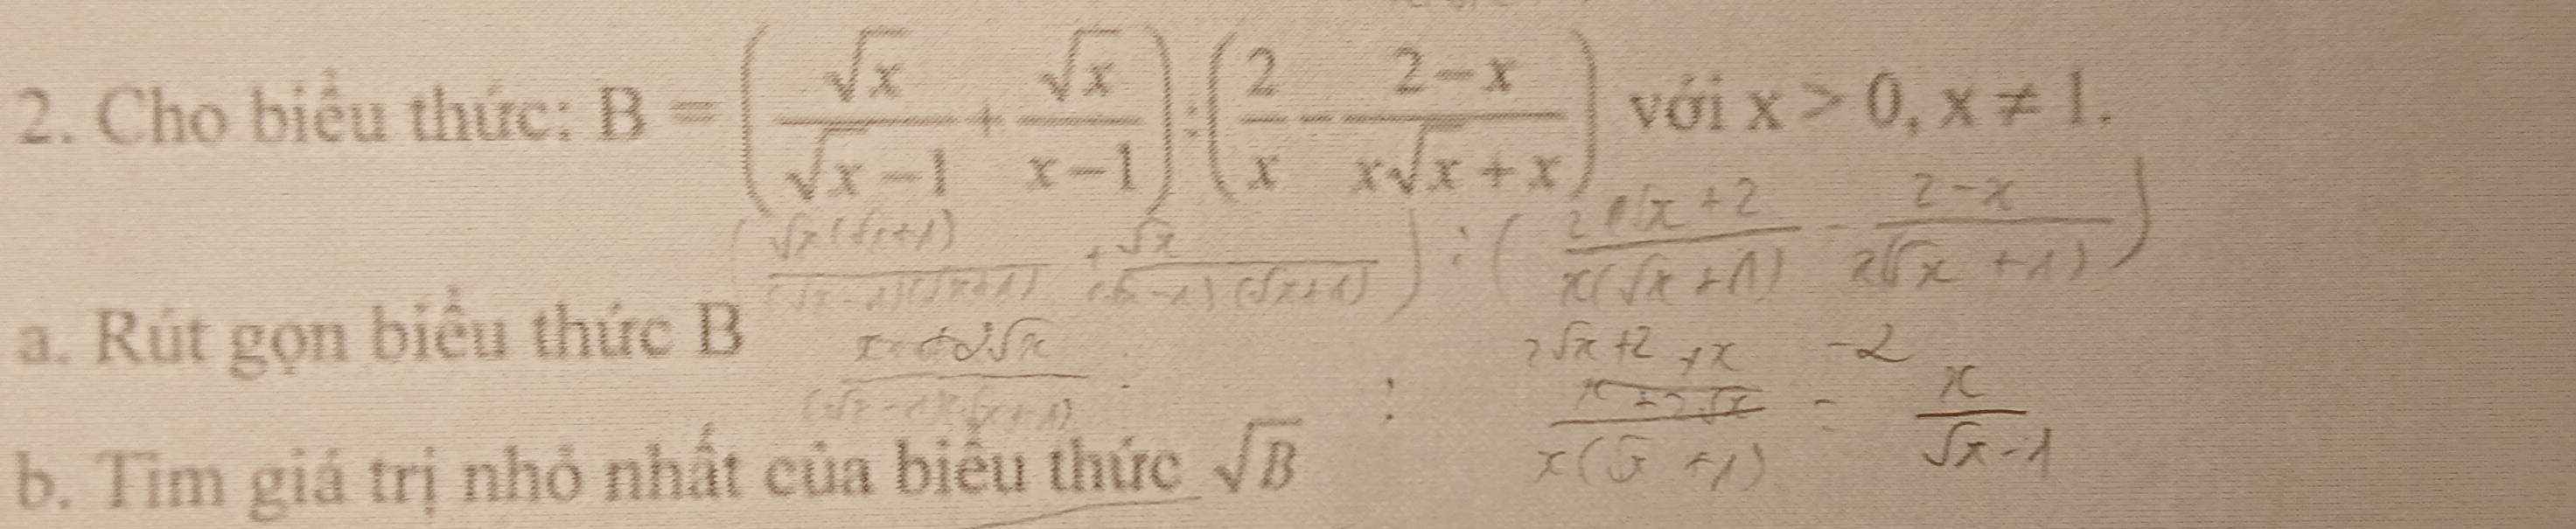 2. Cho biểu thức: B = (√x/(√x−1) + √x/(x−1)) : (2/x − (2−x)/(x√x+x)) với x > 0, x ≠ 1.
(√x(√x+1)/((√x−1)(√x+1)) + √x/((√x−1)(√x+1))) : ((2√x+2)/(x(√x+1)) − (2−x)/(x(√x+1)))
a. Rút gọn biểu thức B
(x+2√x)/((√x−1)(√x+1)) : (2√x+2+x−2)/(x(√x+1)) = x/(√x−1)
b. Tìm giá trị nhỏ nhất của biểu thức √B